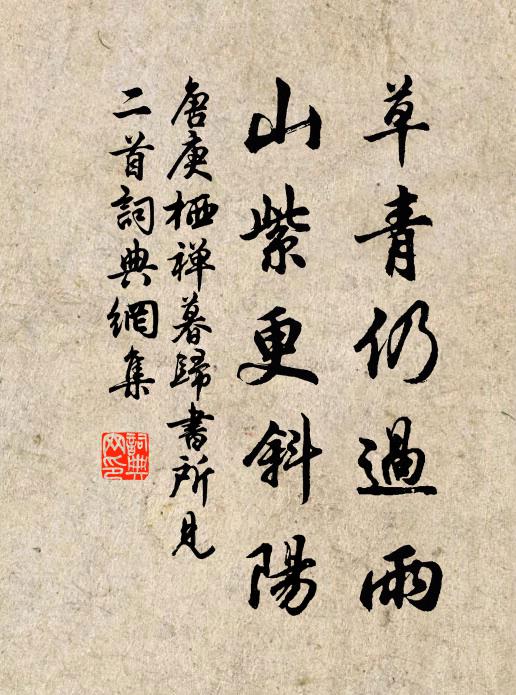 草青仍過雨
山紫更斜陽
唐庚栖禅暮歸書所見
二首詞典網集
詞典
网印